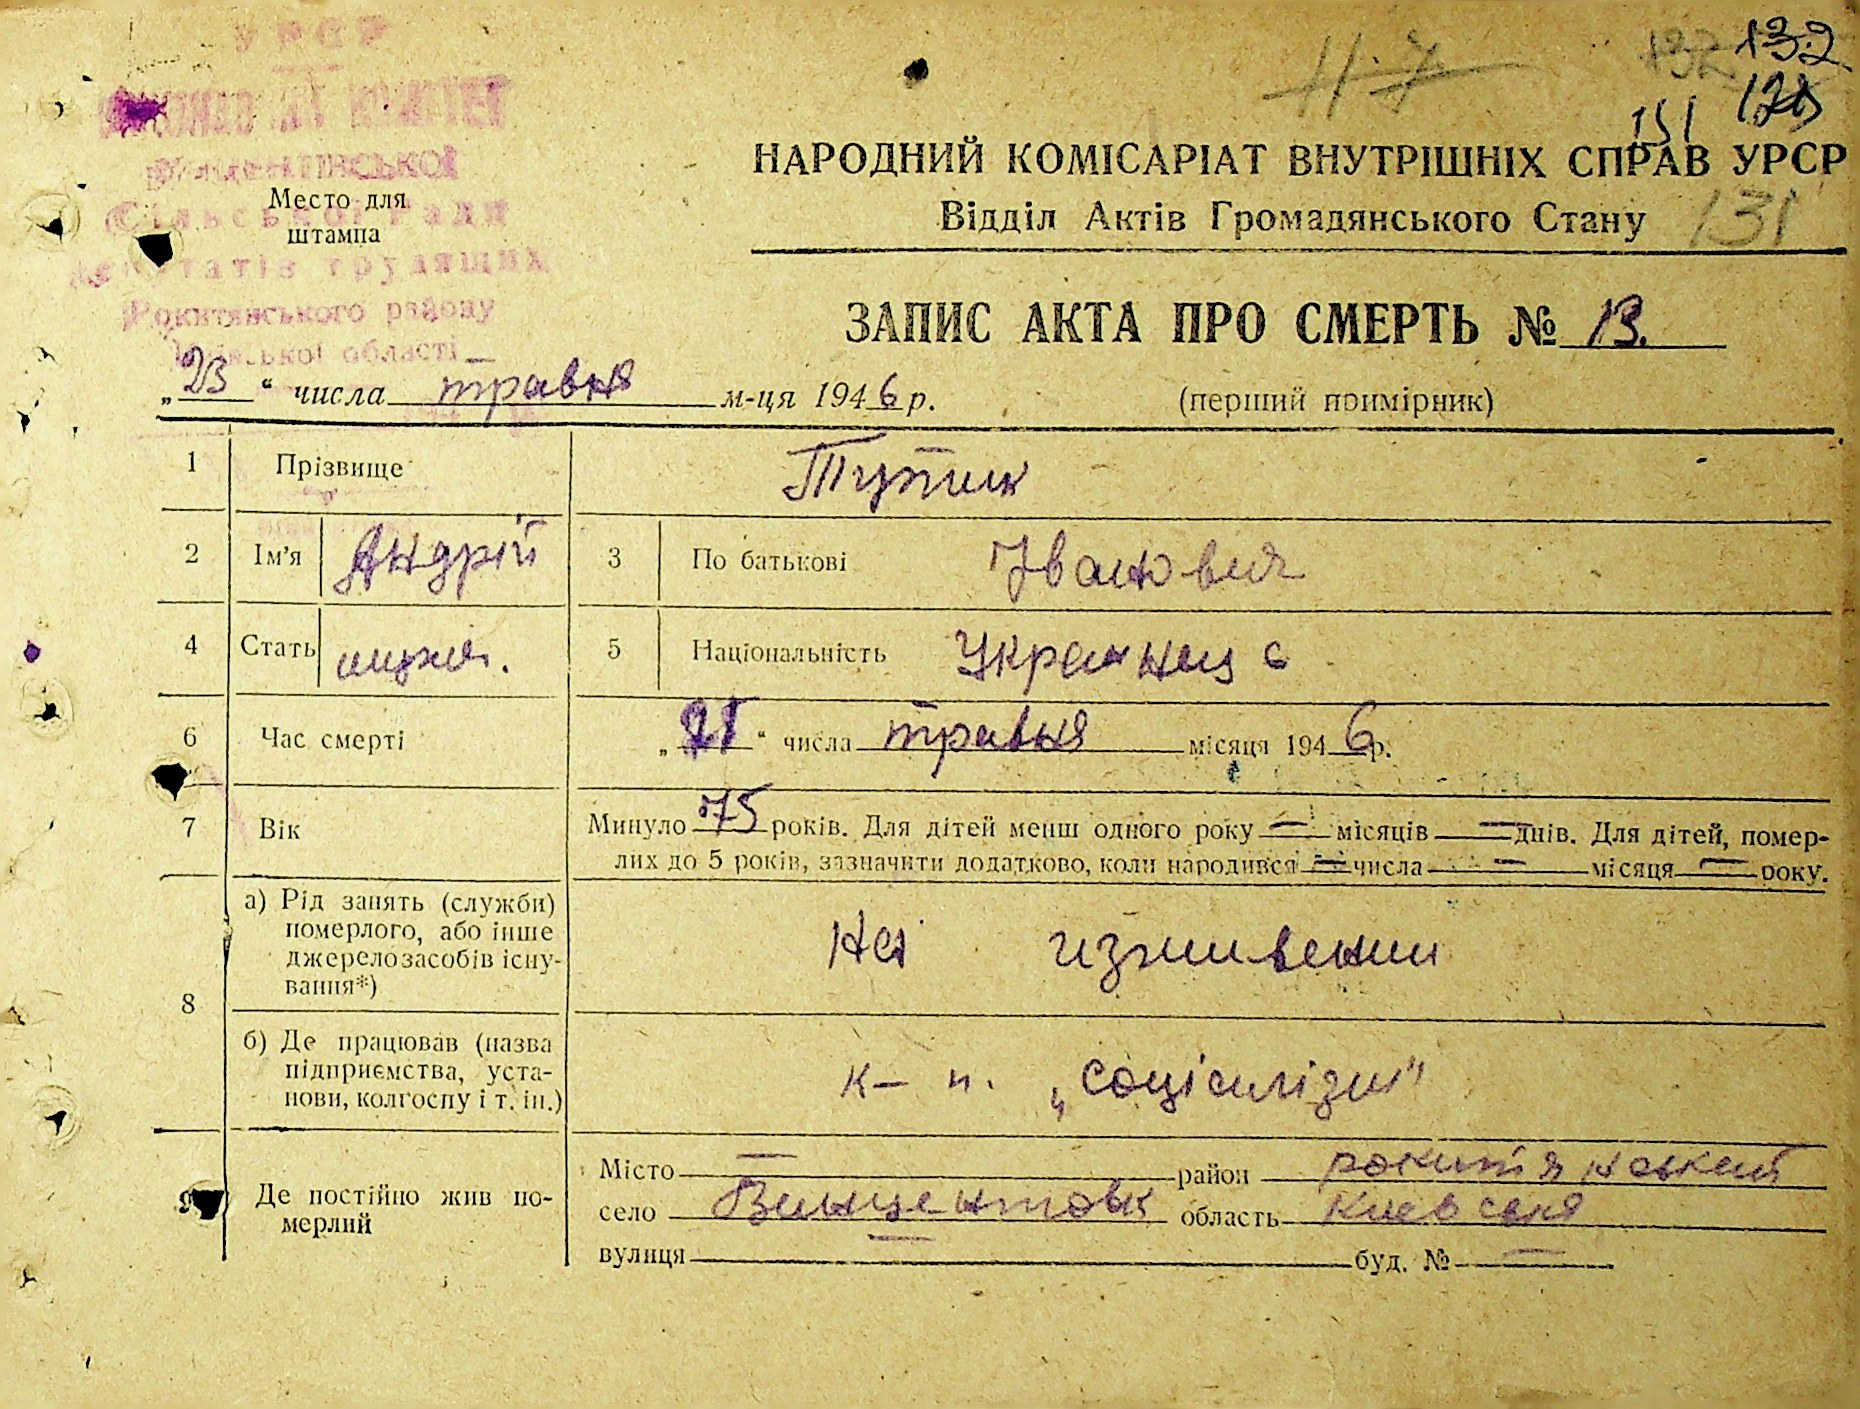 УРСР
Сільської Ради
депутатів трудящих
Рокитянського району
області
Место для
штампа
117
132 132
128
151
НАРОДНИЙ КОМІСАРІАТ ВНУТРІШНІХ СПРАВ УРСР
Відділ Актів Громадянського Стану 131
ЗАПИС АКТА ПРО СМЕРТЬ № 13.
„23“ числа травня м-ця 1946 р.
(перший примірник)
1 Прізвище Тупик
2 Ім'я Андрій 3 По батькові Іванович
4 Стать 5 Національність Украинец
6 Час смерті „21“ числа травня місяця 1946 р.
7 Вік Минуло 75 років. Для дітей менш одного року — місяців — днів. Для дітей, помер-
лих до 5 років, зазначити додатково, коли народився — числа — місяця — року.
8 а) Рід занять (служби)
померлого, або інше
джерело засобів існу-
вання*)
На иждивении
б) Де працював (назва
підприємства, уста-
нови, колгоспу і т. ін.)
к-п. „Соціалізм"
9 Де постійно жив по-
мерлий
Місто — район рокитянський
село Винцентовк область Киевська
вулиця — буд. № —